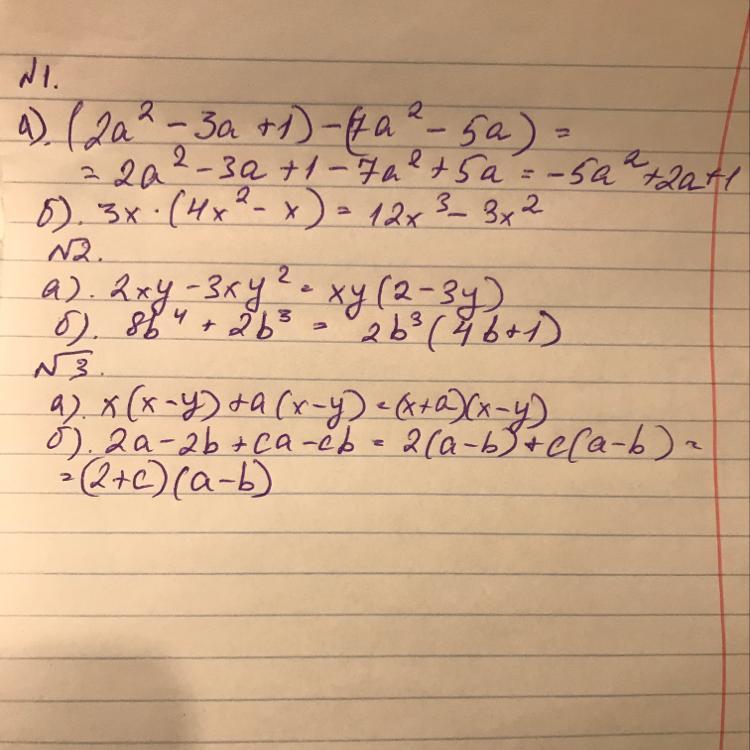 №1.
а). (2a² - 3a + 1) - (7a² - 5a) =
= 2a² - 3a + 1 - 7a² + 5a = -5a² + 2a + 1
б). 3x · (4x² - x) = 12x³ - 3x²
№2.
а). 2xy - 3xy² = xy(2 - 3y)
б). 8b⁴ + 2b³ = 2b³(4b + 1)
№3.
а). x(x - y) + a(x - y) = (x + a)(x - y)
б). 2a - 2b + ca - cb = 2(a - b) + c(a - b) =
= (2 + c)(a - b)